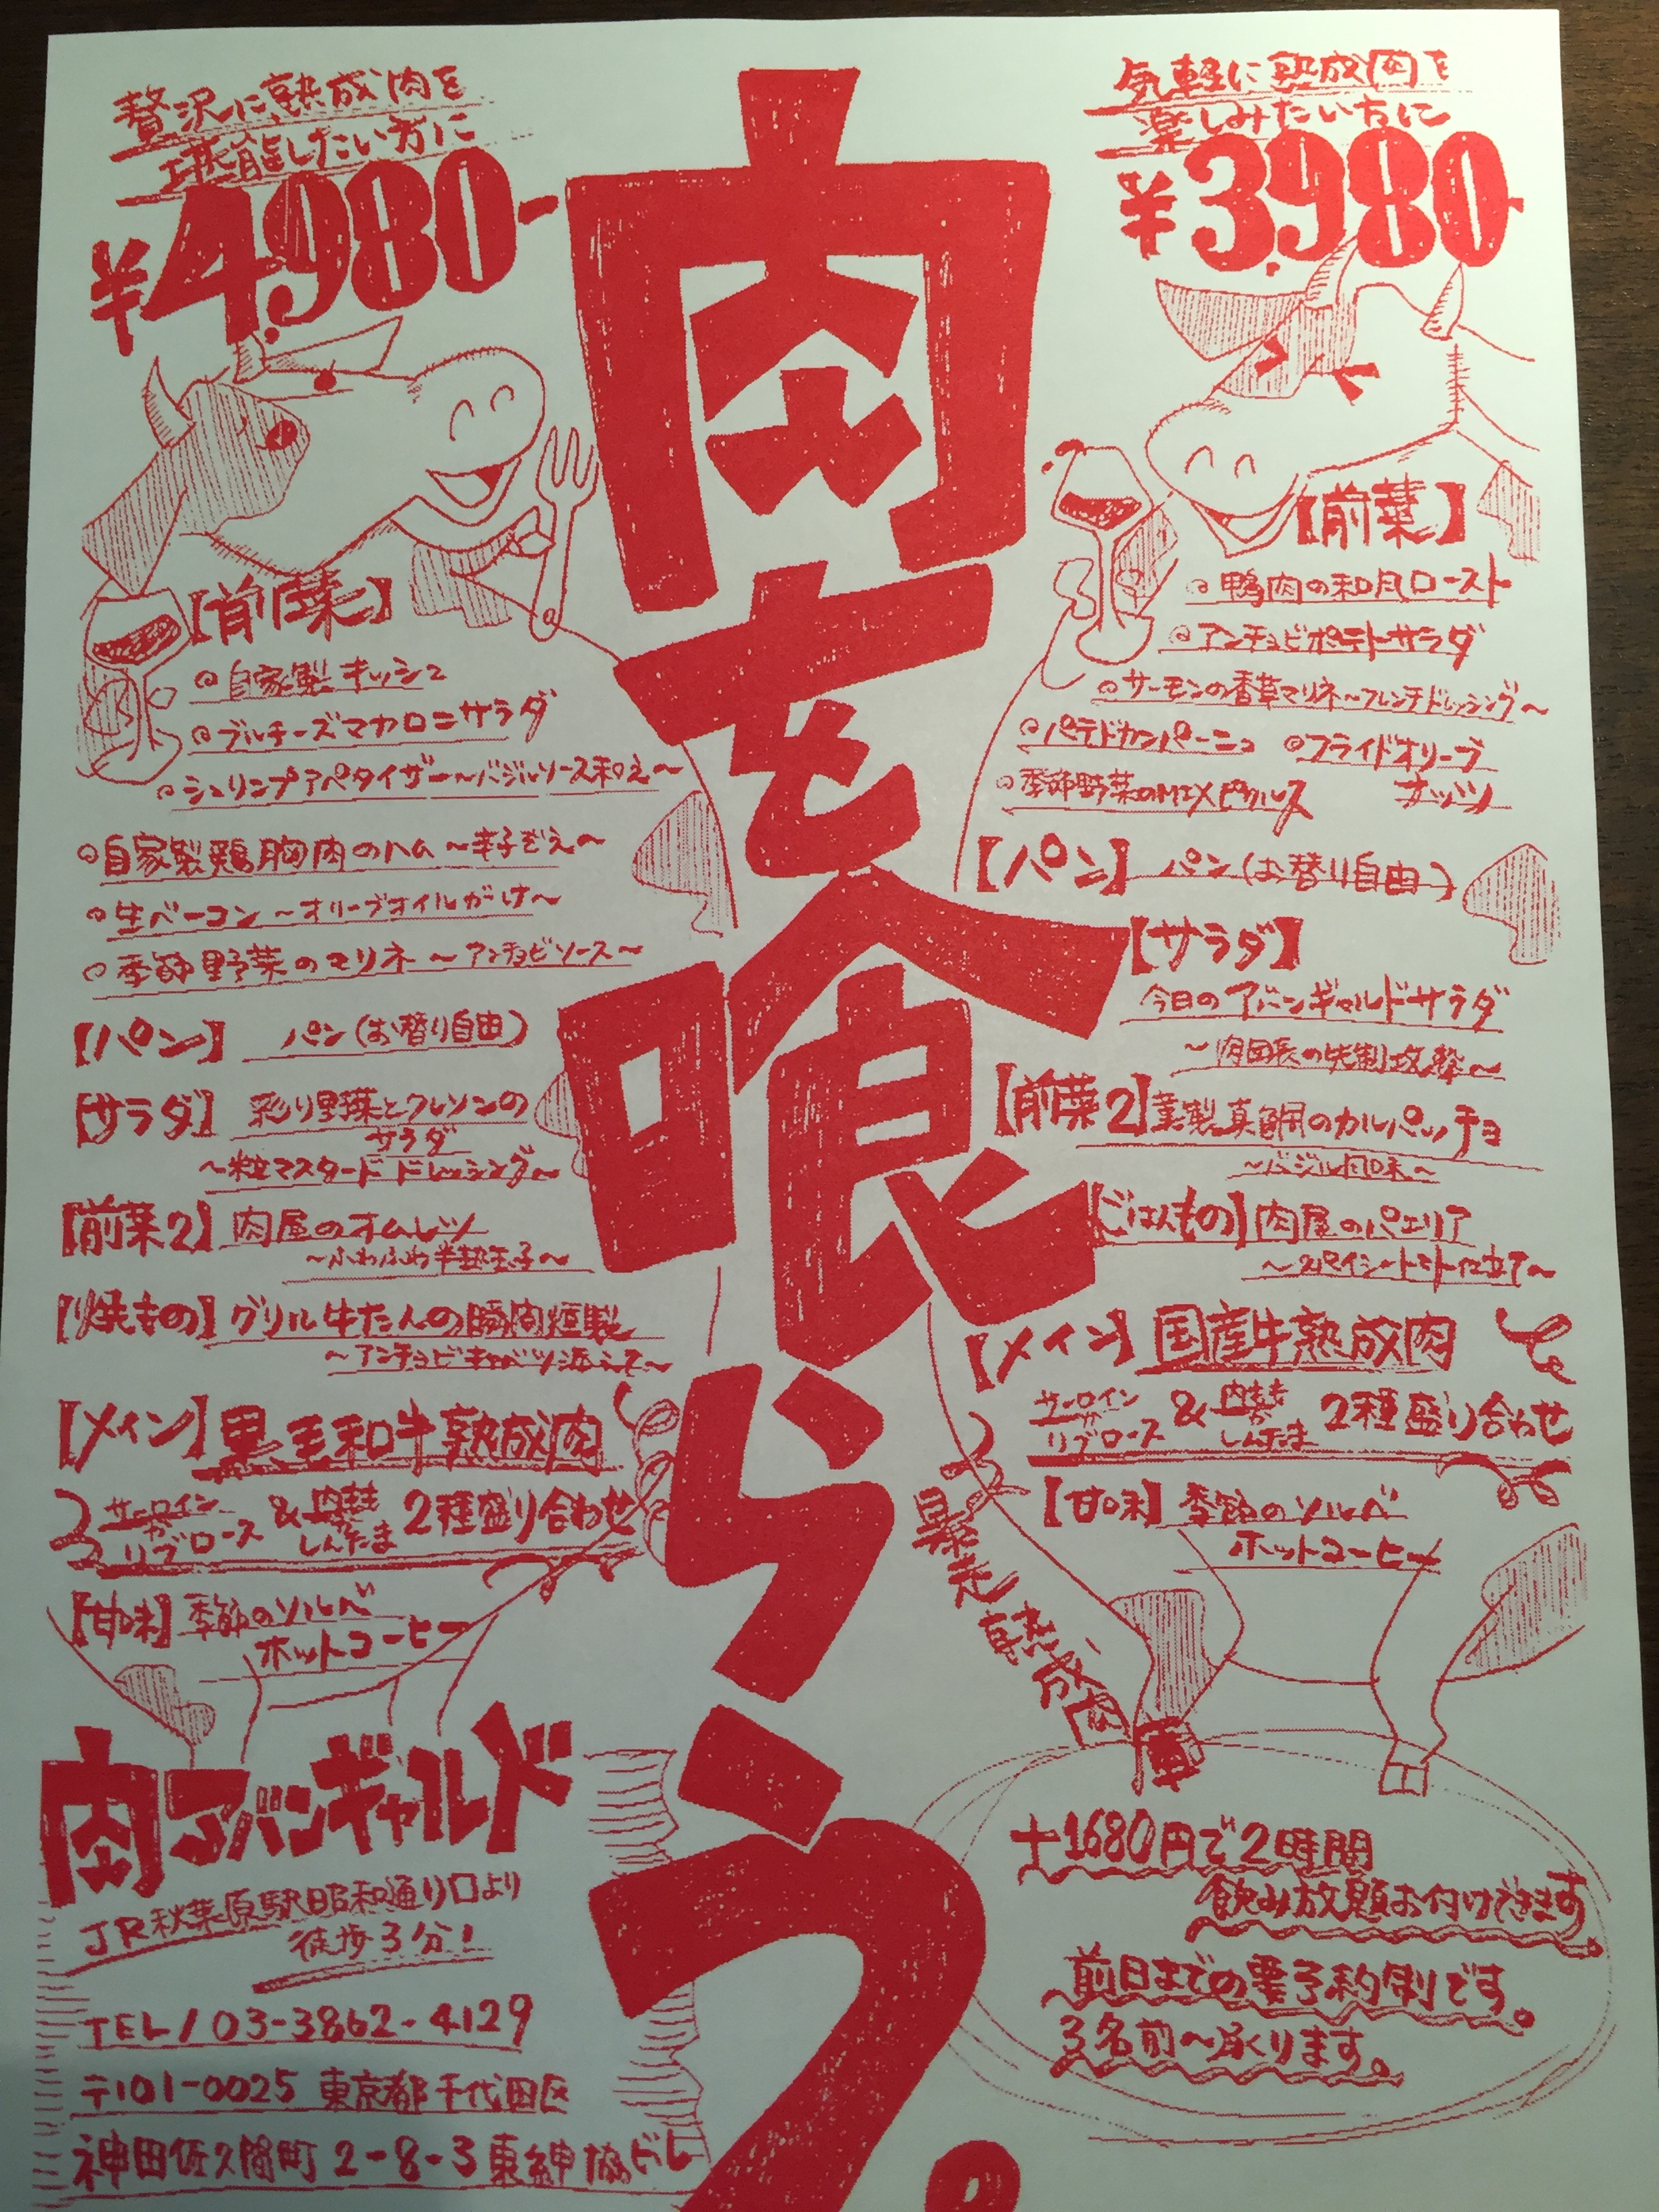 贅沢に熟成肉を
堪能したい方に
¥4,980-
【前菜】
◎自家製キッシュ
◎ブルチーズマカロニサラダ
◎シュリンプアペタイザー～バジルソース和え～
◎自家製鶏胸肉のハム～辛子ぞえ～
◎生ベーコン～オリーブオイルがけ～
◎季節野菜のマリネ～アンチョビソース～
【パン】 パン(お替り自由)
【サラダ】 彩り野菜とクレソンの
サラダ
～粒マスタードドレッシング～
【前菜2】 肉屋のオムレツ
～ふわふわ半熟玉子～
【焼もの】グリル牛たんの瞬間燻製
～アンチョビキャベツ添えて～
【メイン】黒毛和牛熟成肉
サーロイン
か
リブロース
&
内もも
か
しんたま
2種盛り合わせ
【甘味】季節のソルベ
ホットコーヒー
肉を喰らう。
気軽に熟成肉を
楽しみたい方に
¥3,980-
【前菜】
◎鴨肉の和風ロースト
◎アンチョビポテトサラダ
◎サーモンの香草マリネ～フレンチドレッシング～
◎パテドカンパーニュ ◎フライドオリーブ
◎季節野菜のMIXピクルス ナッツ
【パン】 パン(お替り自由)
【サラダ】
今日のアバンギャルドサラダ
～肉団長の先制攻撃～
【前菜2】燻製真鯛のカルパッチョ
～バジル風味～
【ごはんもの】肉屋のパエリア
～スパイシートマト仕立て～
【メイン】国産牛熟成肉
サーロイン
か
リブロース
&
内もも
か
しんたま
2種盛り合わせ
【甘味】季節のソルベ
ホットコーヒー
暴走熟成肉軍
肉アバンギャルド
JR秋葉原駅昭和通り口より
徒歩3分!
TEL/03-3862-4129
〒101-0025 東京都千代田区
神田佐久間町2-8-3東紳協ビル
+1680円で2時間
飲み放題お付けできます
前日までの要予約制です。
3名前～承ります。